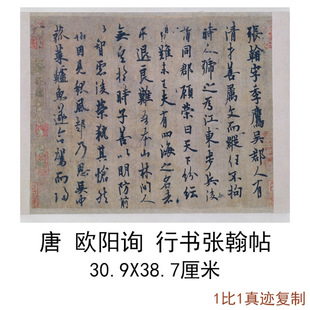 張翰字季鷹吳郡人有
清才善屬文而縱任不拘
時人號之為江東步兵後
謂同郡顧榮曰天下紛紜
禍難未已夫有四海之名者
求退良難吾本山林間人
無望於時子善以明防前
以智慮後榮執其愴然
翰因見秋風起乃思吳中
菰菜鱸魚遂命駕而歸
唐 欧阳询 行书张翰帖
30.9X38.7厘米
1比1真迹复制